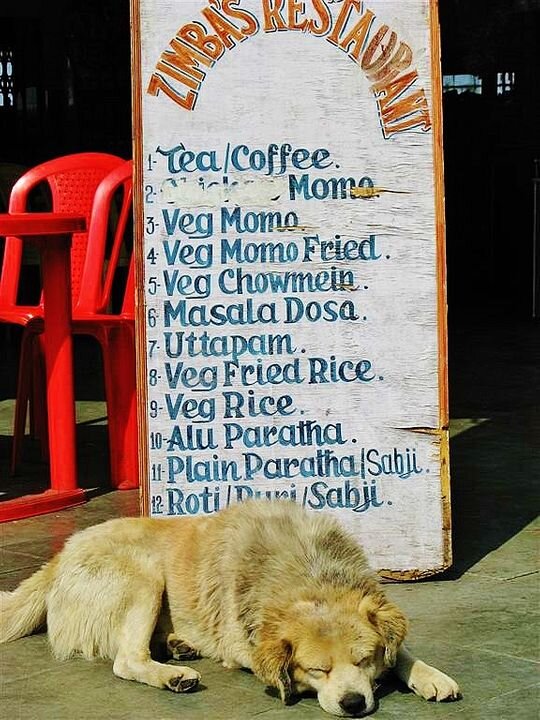 ZIMBA'S RESTAURANT
1- Tea/Coffee.
2- Chicken Momo
3- Veg Momo
4- Veg Momo Fried.
5- Veg Chowmein.
6- Masala Dosa.
7- Uttapam.
8- Veg Fried Rice.
9- Veg Rice.
10- Alu Paratha.
11- Plain Paratha/Sabji.
12- Roti/Puri/Sabji.